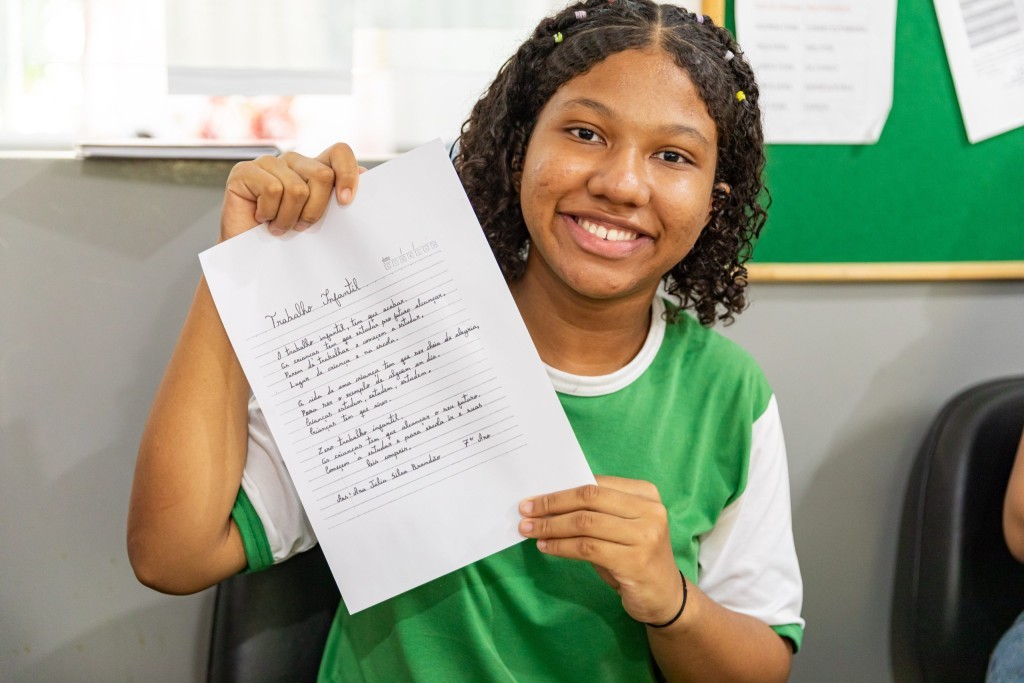 Trabalho Infantil
O trabalho infantil, tem que acabar.
As crianças tem que estudar pro futuro alcançar.
Parem de trabalhar e começem a estudar.
Lugar de criança é na escola.
A vida de uma criança tem que ser cheia de alegria,
Para ser o exemplo de alguém um dia.
Crianças estudem, estudem, estudem.
Crianças tem que viver.
Zero trabalho infantil,
As crianças tem que alcançar o seu futuro.
Começem a estudar e parar escola ir e suas
leis cumprir.
Ass: Ana Júlia Silva Brandão 7º Ano